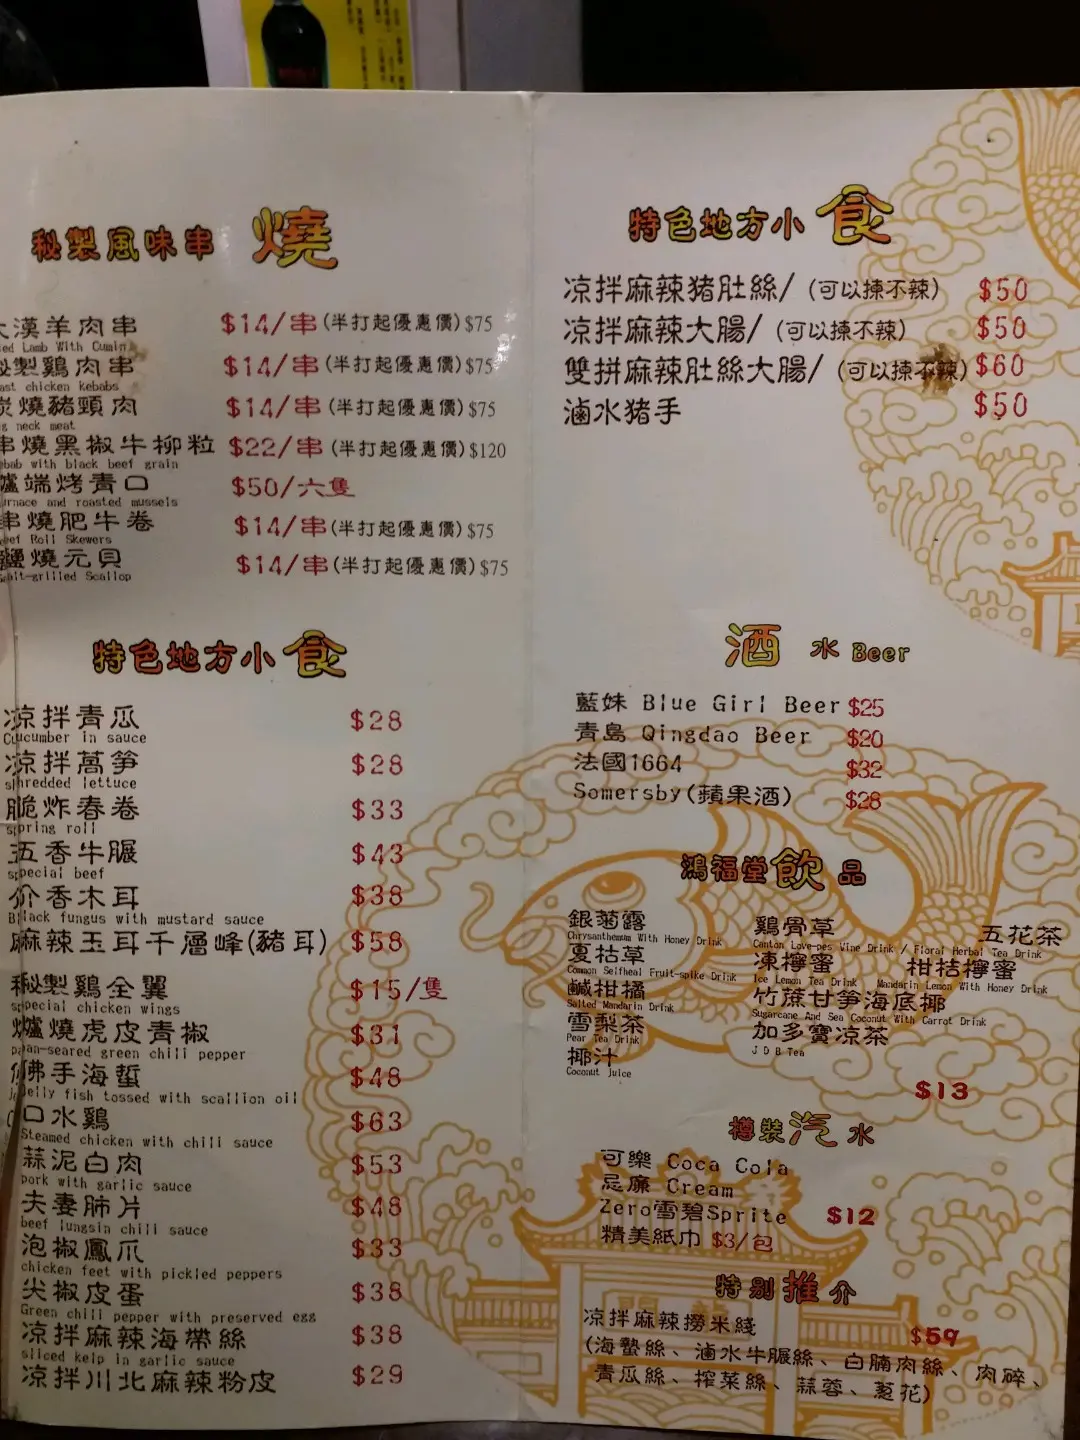 秘製風味串 燒
大漢羊肉串 $14/串(半打起優惠價)$75
ed Lamb With Cumin
秘製鷄肉串 $14/串(半打起優惠價)$75
ast chicken kebabs
炭燒豬頸肉 $14/串(半打起優惠價)$75
g neck meat
串燒黑椒牛柳粒 $22/串(半打起優惠價)$120
ebab with black beef grain
爐端烤青口 $50/六隻
urnace and roasted mussels
串燒肥牛卷 $14/串(半打起優惠價)$75
eef Roll Skewers
鹽燒元貝 $14/串(半打起優惠價)$75
alt-grilled Scallop
特色地方小食
凉拌青瓜 $28
Cucumber in sauce
凉拌萵笋 $28
shredded lettuce
脆炸春卷 $33
spring roll
五香牛腱 $43
special beef
介香木耳 $38
Black fungus with mustard sauce
麻辣玉耳千層峰(豬耳) $58
秘製鷄全翼 $15/隻
special chicken wings
爐燒虎皮青椒 $31
pan-seared green chili pepper
佛手海蜇 $48
Jelly fish tossed with scallion oil
口水鷄 $63
Steamed chicken with chili sauce
蒜泥白肉 $53
pork with garlic sauce
夫妻肺片 $48
beef lungsin chili sauce
泡椒鳳爪 $33
chicken feet with pickled peppers
尖椒皮蛋 $38
Green chili pepper with preserved egg
凉拌麻辣海帶絲 $38
sliced kelp in garlic sauce
凉拌川北麻辣粉皮 $29
特色地方小食
凉拌麻辣猪肚絲/(可以揀不辣) $50
凉拌麻辣大腸/(可以揀不辣) $50
雙拼麻辣肚絲大腸/(可以揀不辣) $60
滷水猪手 $50
酒水 Beer
藍妹 Blue Girl Beer $25
青島 Qingdao Beer $20
法國1664 $32
Somersby(蘋果酒) $28
鴻福堂飲品
銀菊露
Chrysanthemum With Honey Drink
夏枯草
Common Selfheal Fruit-spike Drink
鹹柑橘
Salted Mandarin Drink
雪梨茶
Pear Tea Drink
椰汁
Coconut Juice
鷄骨草 五花茶
Canton Love-pes Vine Drink / Floral Herbal Tea Drink
凍檸蜜 柑桔檸蜜
Ice Lemon Tea Drink Mandarin Lemon With Honey Drink
竹蔗甘笋海底椰
Sugarcane And Sea Coconut With Carrot Drink
加多寶凉茶
JDB Tea
$13
樽裝汽水
可樂 Coca Cola
忌廉 Cream
Zero雪碧Sprite $12
精美紙巾 $3/包
特別推介
凉拌麻辣撈米綫 $59
(海蜇絲、滷水牛腱絲、白腩肉絲、肉碎、
青瓜絲、榨菜絲、蒜蓉、葱花)